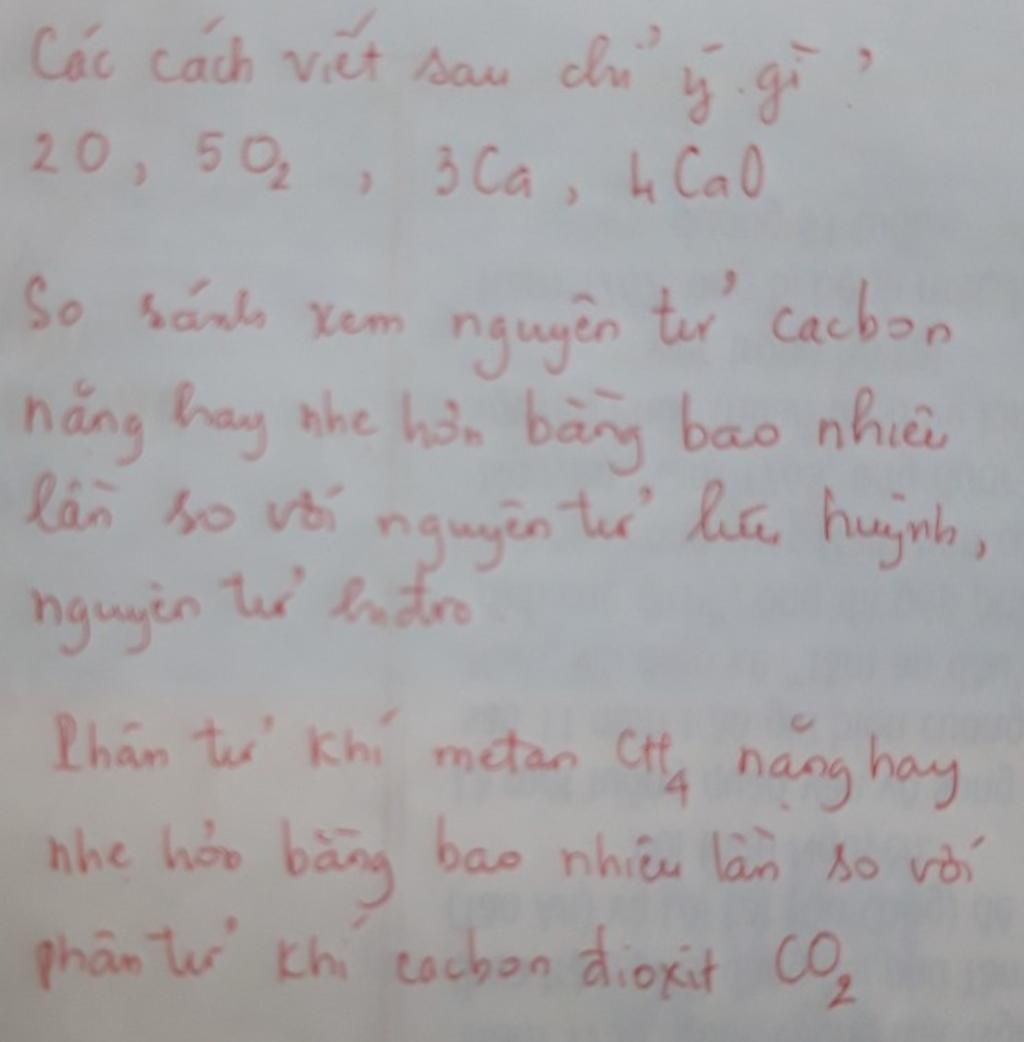 Các cách viết sau chỉ ý gì?
2O, 5O₂, 3Ca, 4CaO
So sánh xem nguyên tử cacbon
nặng hay nhẹ hơn bằng bao nhiêu
lần so với nguyên tử lưu huỳnh,
nguyên tử hiđro
Phân tử khí metan CH₄ nặng hay
nhẹ hơn bằng bao nhiêu lần so với
phân tử khí cacbon đioxit CO₂